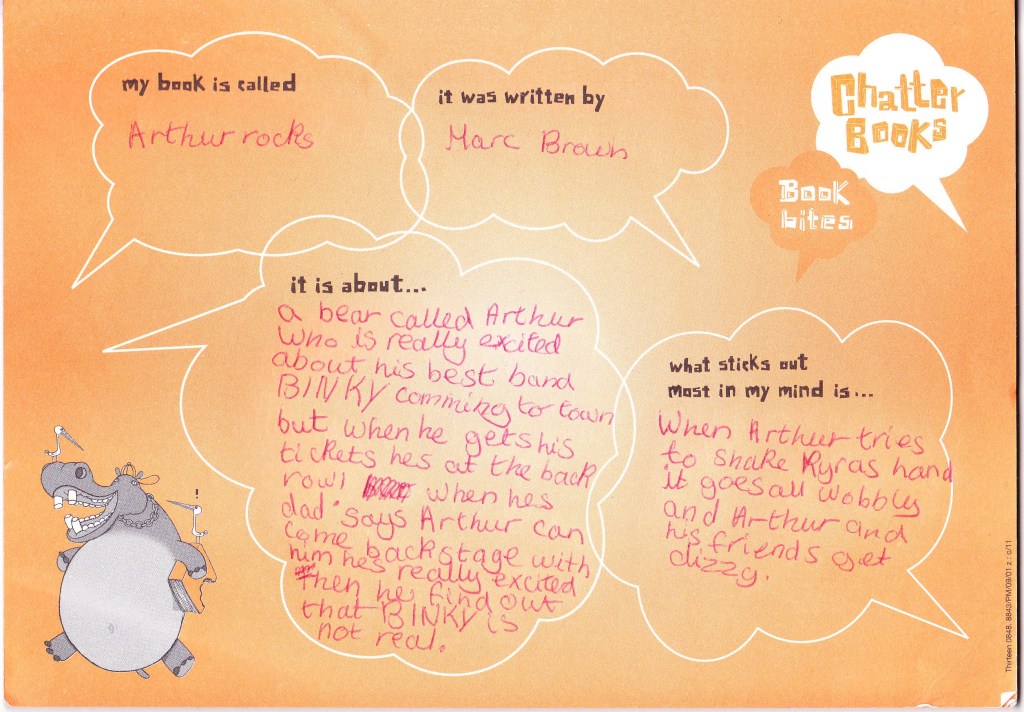 my book is called
Arthur rocks
it was written by
Marc Brown
Chatter
BOOKS
Book
bites
it is about...
a bear called Arthur
who is really excited
about his best band
BINKY comming to town
but when he gets his
tickets hes at the back
row!  when hes
dad says Arthur can
come backstage with
him hes really excited
Then he find out
that BINKY is
not real.
what sticks out
most in my mind is...
When Arthur tries
to shake Kyras hand
it goes all wobbly
and Arthur and
his friends get
dizzy.
!
Thirteen 0848. 8843/PM/09/01 z : o/11